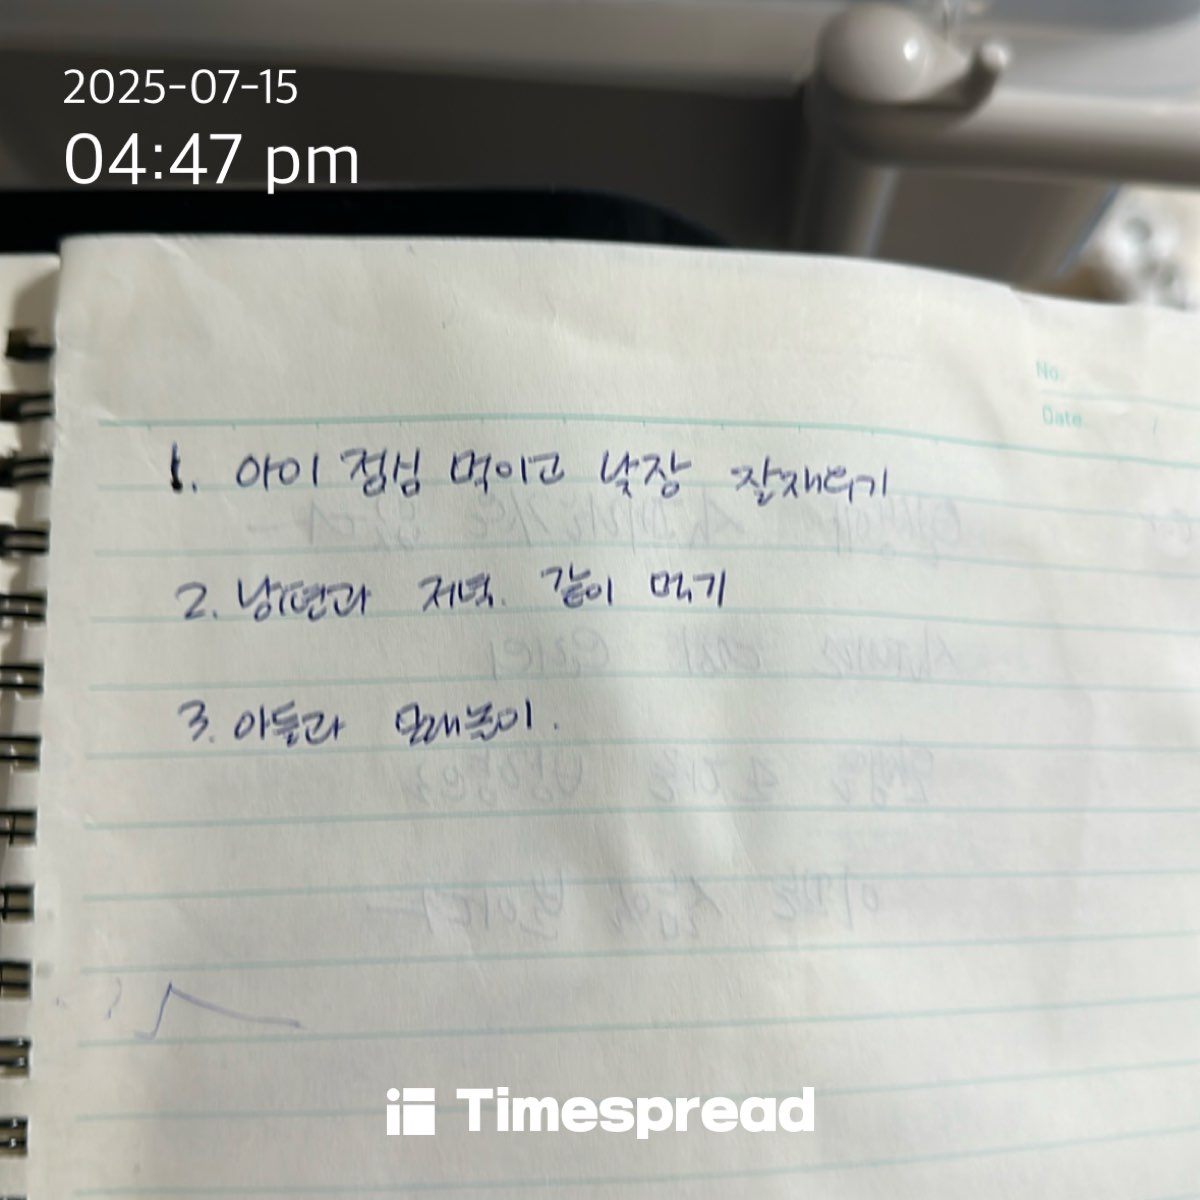 2025-07-15
04:47 pm
No.
Date
1. 아이 점심 먹이고 낮잠 잘재우기
2. 남편과 저녁. 같이 먹기
3. 아들과 모래놀이.
Timespread